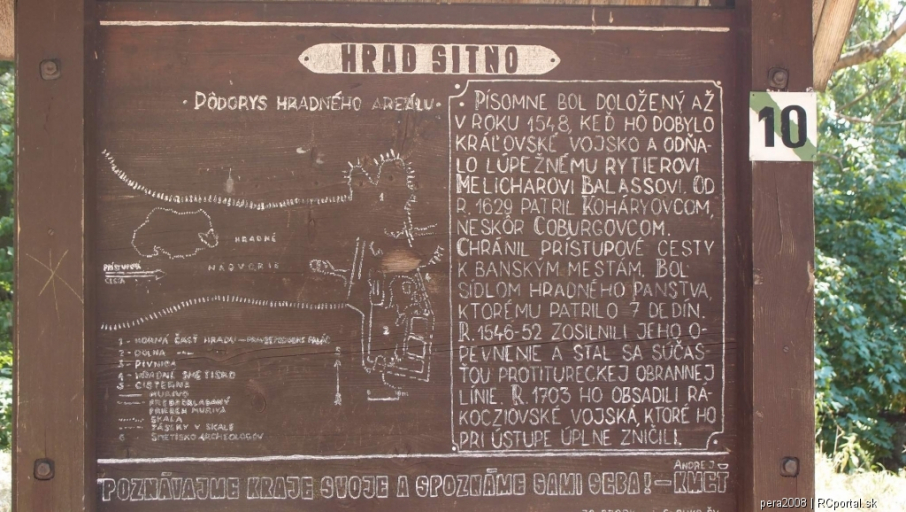 HRAD SITNO
10
· PÔDORYS HRADNÉHO AREÁLU ·
HRADNÉ
NÁDVORIE
PRÍSTUPOVÁ
CESTA
1 - HORNÁ ČASŤ HRADU
2 - DOLNÁ
3 - PIVNICA
4 - HRADNÉ SMETISKO
5 - CISTERNE
MURIVO
PREDPOKLADANÝ
PRIEBEH MURIVA
SKALA
ZÁSEKY V SKALE
6 SMETISKO ARCHEOLÓGOV
PÍSOMNE BOL DOLOŽENÝ AŽ
V ROKU 1548, KEĎ HO DOBYLO
KRÁĽOVSKÉ VOJSKO A ODŇA-
LO LÚPEŽNÉMU RYTIEROVI
MELICHAROVI BALASSOVI. OD
R. 1629 PATRIL KOHÁRYOVCOM,
NESKÔR COBURGOVCOM.
CHRÁNIL PRÍSTUPOVÉ CESTY
K BANSKÝM MESTÁM. BOL
SÍDLOM HRADNÉHO PANSTVA,
KTORÉMU PATRILO 7 DEDÍN.
R. 1546-52 ZOSILNILI JEHO O-
PEVNENIE A STAL SA SÚČAS-
ŤOU PROTITURECKEJ OBRANNEJ
LÍNIE. R. 1703 HO OBSADILI RÁ-
KOCZIOVSKÉ VOJSKÁ, KTORÉ HO
PRI ÚSTUPE ÚPLNE ZNIČILI.
POZNÁVAJME KRAJE SVOJE A SPOZNÁME SAMI SEBA! – ANDREJ KMEŤ
pera2008 | RCportal.sk